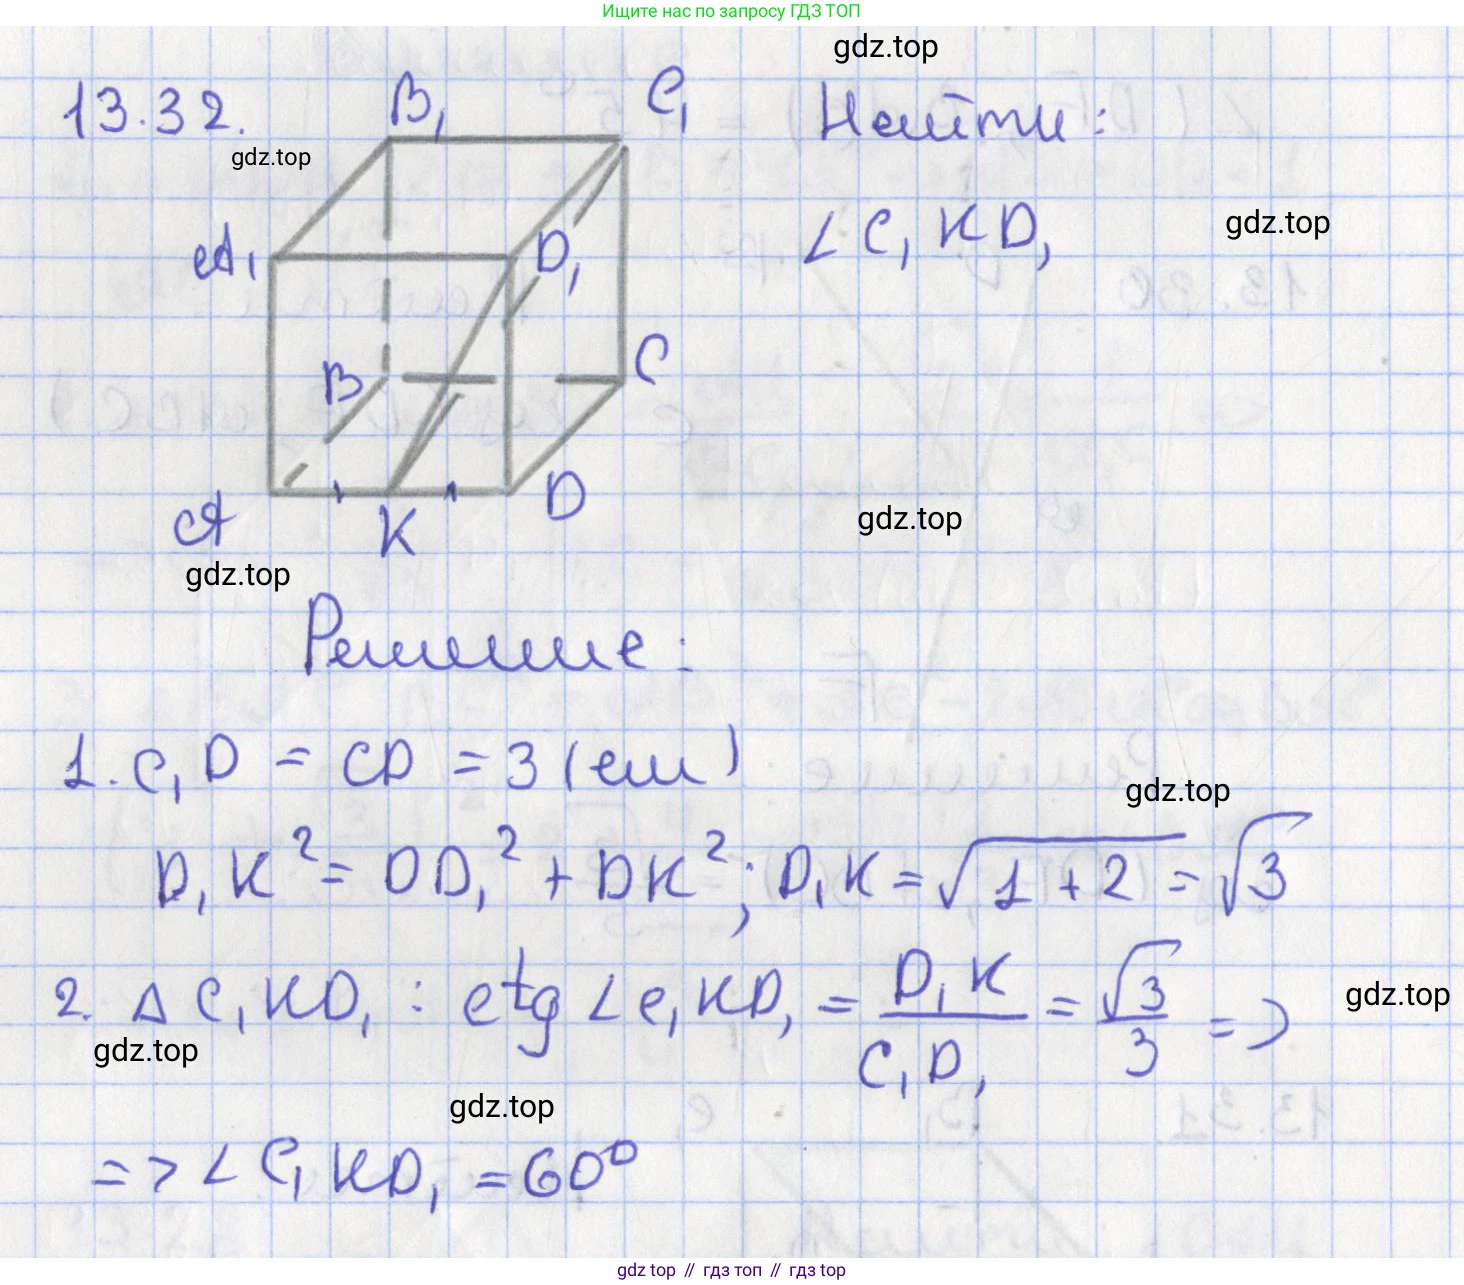 Ищите нас по запросу ГДЗ ТОП
gdz.top
13.32.
B₁
C₁
Найти:
gdz.top
A₁
D₁
∠C₁KD₁
gdz.top
B
C
A
K
D
gdz.top
gdz.top
Решение:
1. C₁D = CD = 3 (см)
gdz.top
D₁K² = DD₁² + DK²; D₁K = √(1+2) = √3
2. △ C₁KD₁ : ctg ∠C₁KD₁ = D₁K/C₁D₁ = √3/3 =>
gdz.top
gdz.top
gdz.top
=> ∠C₁KD₁ = 60°
gdz top // гдз топ // гдз top